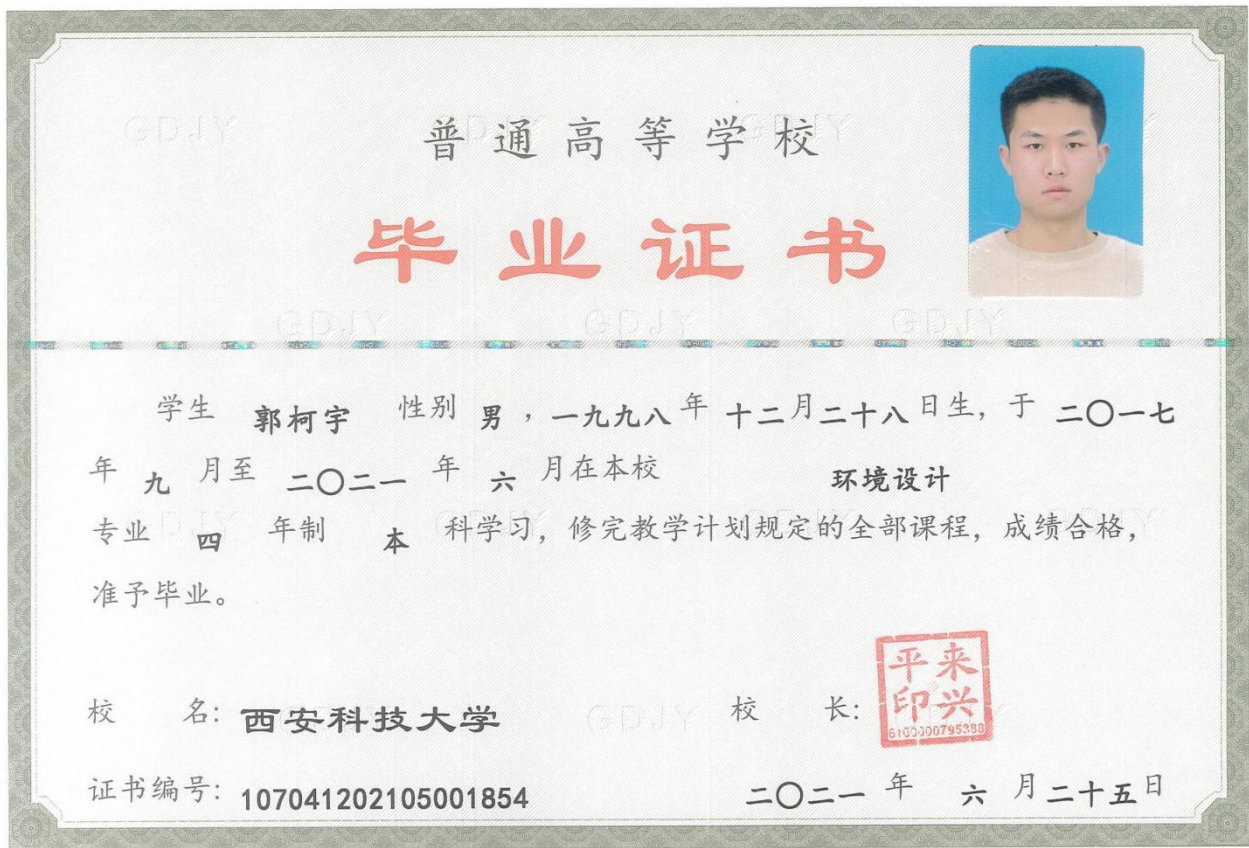 普通高等学校
毕业证书
GDJY GDJY GDJY
学生 郭柯宇 性别 男，一九九八年十二月二十八日生，于 二〇一七
年 九 月至 二〇二一 年 六 月在本校 环境设计
专业 四 年制 本 科学习，修完教学计划规定的全部课程，成绩合格，
准予毕业。
校 名：西安科技大学 校 长：
平来
印兴
6100000795388
证书编号：107041202105001854 二〇二一 年 六 月二十五日